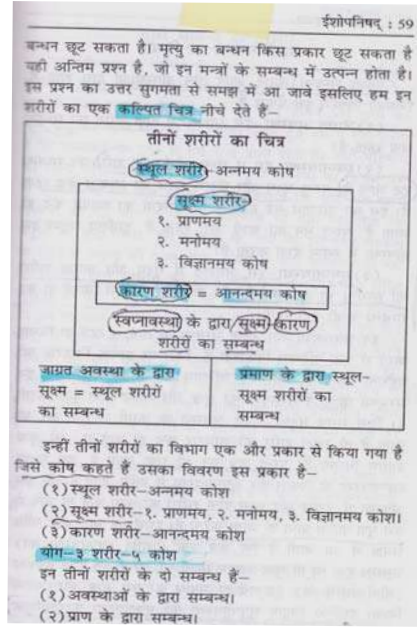 ईशोपनिषद् : 59
बन्धन छूट सकता है। मृत्यु का बन्धन किस प्रकार छूट सकता है
यही अन्तिम प्रश्न है, जो इन मन्त्रों के सम्बन्ध में उत्पन्न होता है।
इस प्रश्न का उत्तर सुगमता से समझ में आ जावे इसलिए हम इन
शरीरों का एक कल्पित चित्र नीचे देते हैं–
तीनों शरीरों का चित्र
स्थूल शरीर-अन्नमय कोष
सूक्ष्म शरीर-
१. प्राणमय
२. मनोमय
३. विज्ञानमय कोष
कारण शरीर = आनन्दमय कोष
स्वप्नावस्था के द्वारा/सूक्ष्म-कारण
शरीरों का सम्बन्ध
जाग्रत अवस्था के द्वारा
सूक्ष्म = स्थूल शरीरों
का सम्बन्ध
प्रमाण के द्वारा स्थूल–
सूक्ष्म शरीरों का
सम्बन्ध
इन्हीं तीनों शरीरों का विभाग एक और प्रकार से किया गया है
जिसे कोष कहते हैं उसका विवरण इस प्रकार है–
(१) स्थूल शरीर-अन्नमय कोश
(२) सूक्ष्म शरीर-१. प्राणमय, २. मनोमय, ३. विज्ञानमय कोश।
(३) कारण शरीर-आनन्दमय कोश
योग-३ शरीर-५ कोश
इन तीनों शरीरों के दो सम्बन्ध हैं-
(१) अवस्थाओं के द्वारा सम्बन्ध।
(२) प्राण के द्वारा सम्बन्ध।